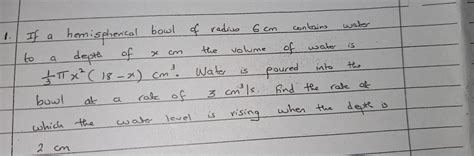 1. If a hemispherical bowl of radius 6 cm contains water
to a depth of x cm the volume of water is
1/3 π x² (18 - x) cm³. Water is poured into the
bowl at a rate of 3 cm³/s. Find the rate at
which the water level is rising when the depth is
2 cm